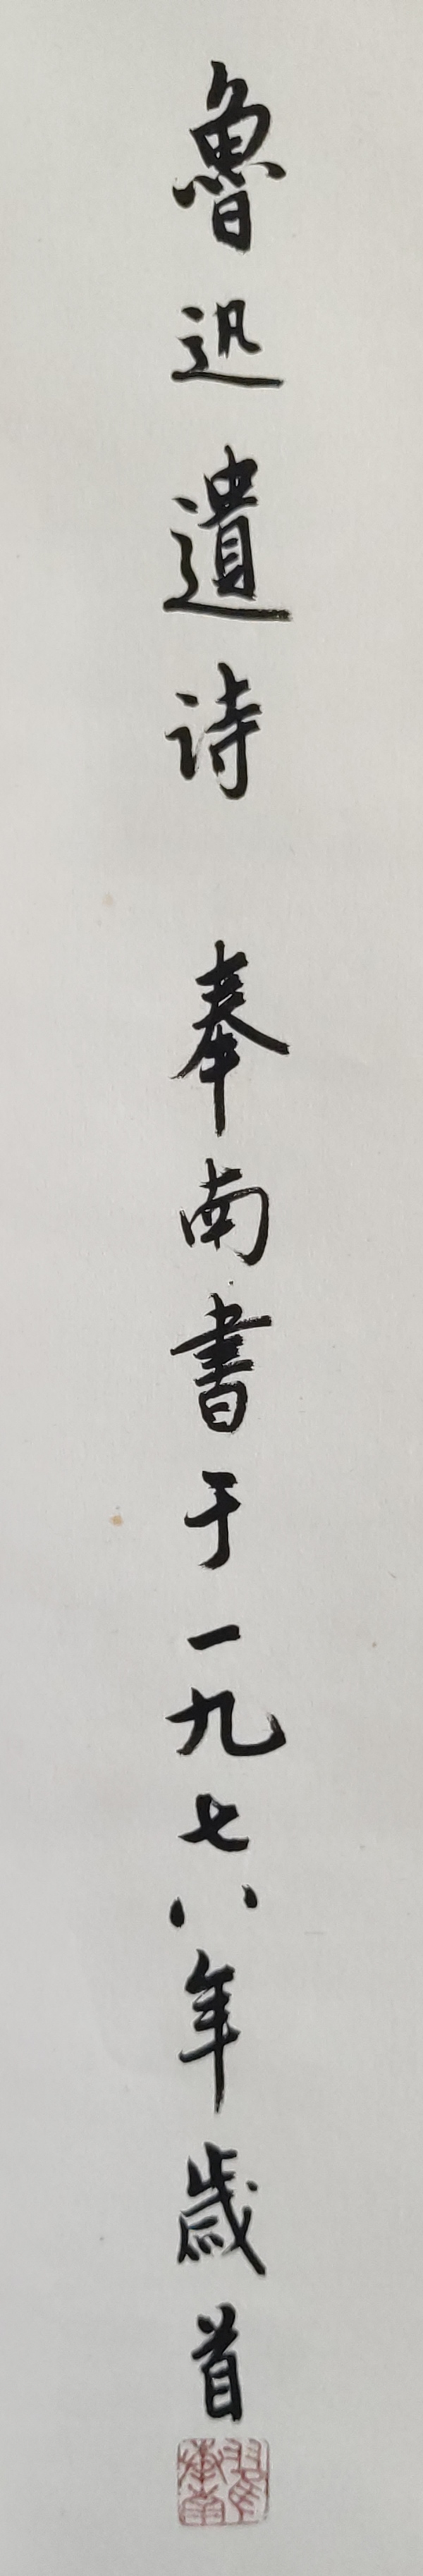 魯迅遺诗 奉南書于一九七八年歲首
翟奉南